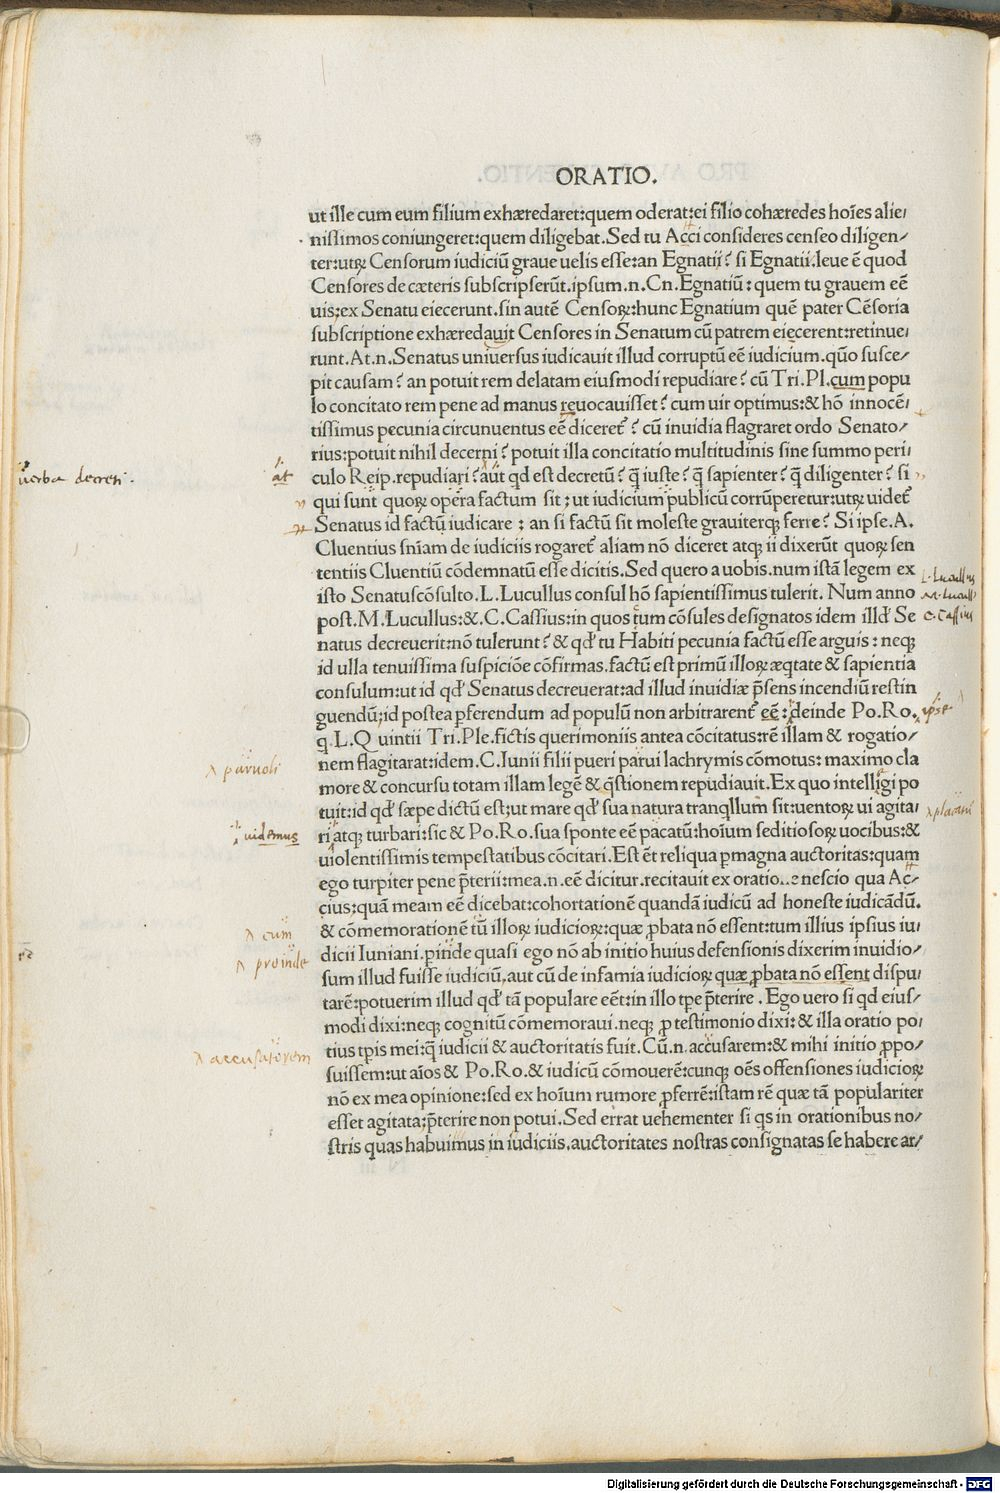 ORATIO.
ut ille cum eum filium exhæredaret:quem oderat:ei filio cohæredes hoı̃es alie/
nissimos coniungeret:quem diligebat.Sed tu Acci consideres censeo diligen/
ter:utrꝫ Censorum iudiciũ graue uelis esse:an Egnatii? si Egnatii.leue ẽ quod
Censores de cæteris subscripserũt.ipsum.n.Cn.Egnatiũ:quem tu grauem eẽ
uis:ex Senatu eiecerunt.sin autẽ Censoꝝ:hunc Egnatium quẽ pater Cẽsoria
subscriptione exhæredauit Censores in Senatum cũ patrem eiecerent:retinue/
runt.At.n.Senatus uniuersus iudicauit illud corruptũ eẽ iudicium.quõ susce/
pit causam? an potuit rem delatam eiusmodi repudiare? cũ Tri.Pl.cum popu
lo concitato rem pene ad manus reuocauisset? cum uir optimus:& hõ innocẽ/
tissimus pecunia circunuentus eẽ diceret̃? cũ inuidia flagraret ordo Senato/
rius:potuit nihil decerni? potuit illa concitatio multitudinis sine summo peri/
culo Reip.repudiari? aut qd est decretũ? q̃ iuste? q̃ sapienter? q̃ diligenter? si
qui sunt quoꝝ opera factum sit; ut iudicium publicũ corrũperetur:utrꝫ uidet̃
Senatus id factũ iudicare: an si factũ sit moleste grauiterqꝫ ferre? Si ipse.A.
Cluentius sñiam de iudiciis rogaret̃ aliam nõ diceret atqꝫ ii dixerũt quoꝝ sen
tentiis Cluentiũ cõdemnatũ esse dicitis.Sed quero a uobis.num istã legem ex
isto Senatuscõsulto.L.Lucullus consul hõ sapientissimus tulerit. Num anno
post.M.Lucullus:&.C.Cassius:in quos tum cõsules designatos idem illđ Se
natus decreuerit:nõ tulerunt? & qđ tu Habiti pecunia factũ esse arguis: neqꝫ
id ulla tenuissima suspiciõe cõfirmas.factũ est primũ illoꝝ æqtate & sapientia
consulum:ut id qđ Senatus decreuerat:ad illud inuidiæ p̃sens incendiũ restin
guendũ;id postea ꝑferendum ad populũ non arbitrarent̃ eẽ: deinde Po.Ro.
q̃.L.Quintii Tri.Ple.fictis querimoniis antea cõcitatus:rẽ illam & rogatio/
nem flagitarat:idem.C.Iunii filii pueri parui lachrymis cõmotus: maximo cla
more & concursu totam illam legẽ & q̃stionem repudiauit.Ex quo intelligi po
tuit:id qđ sæpe dictũ est;ut mare qđ sua natura tranqllum sit:uentoꝝ ui agita/
ri atqꝫ turbari:sic & Po.Ro.sua sponte eẽ pacatũ:hoı̃um seditiosoꝝ uocibus:&
uiolentissimis tempestatibus cõcitari.Est ẽt reliqua ꝑmagna auctoritas:quam
ego turpiter pene p̃terii:mea.n.eẽ dicitur.recitauit ex oratio..e nescio qua Ac/
cius:quã meam eẽ dicebat:cohortationẽ quandã iudicũ ad honeste iudicãdũ.
& cõmemorationẽ tũ illoꝝ iudicioꝝ:quæ ꝓbata nõ essent:tum illius ipsius iu/
dicii Iuniani.ꝑinde quasi ego nõ ab initio huius defensionis dixerim inuidio/
sum illud fuisse iudiciũ,aut cũ de infamia iudicioꝝ quæ ꝓbata nõ essent dispu/
tarẽ:potuerim illud qđ tã populare eẽt:in illo tꝑe p̃terire. Ego uero si qd eius/
modi dixi:neqꝫ cognitũ cõmemoraui.neqꝫ ꝓ testimonio dixi:& illa oratio po/
tius tꝑis mei:q̃ iudicii & auctoritatis fuit.Cũ.n.accusarem:& mihi initio ꝓpo/
suissem:ut aı̃os & Po.Ro.& iudicũ cõmouerẽ:cunqꝫ oẽs offensiones iudicioꝝ
nõ ex mea opinione:sed ex hoı̃um rumore ꝓferrẽ:istam rẽ quæ tã populariter
esset agitata;p̃terire non potui.Sed errat uehementer si qs in orationibus no/
stris quas habuimus in iudiciis.auctoritates nostras consignatas se habere ar/
uerba decreti.
at
L. Lucullus
M. Lucull
C. Cassius
ipse
paruoli
placari
uidemus
cum
proinde
accusatorem
Digitalisierung gefördert durch die Deutsche Forschungsgemeinschaft - DFG